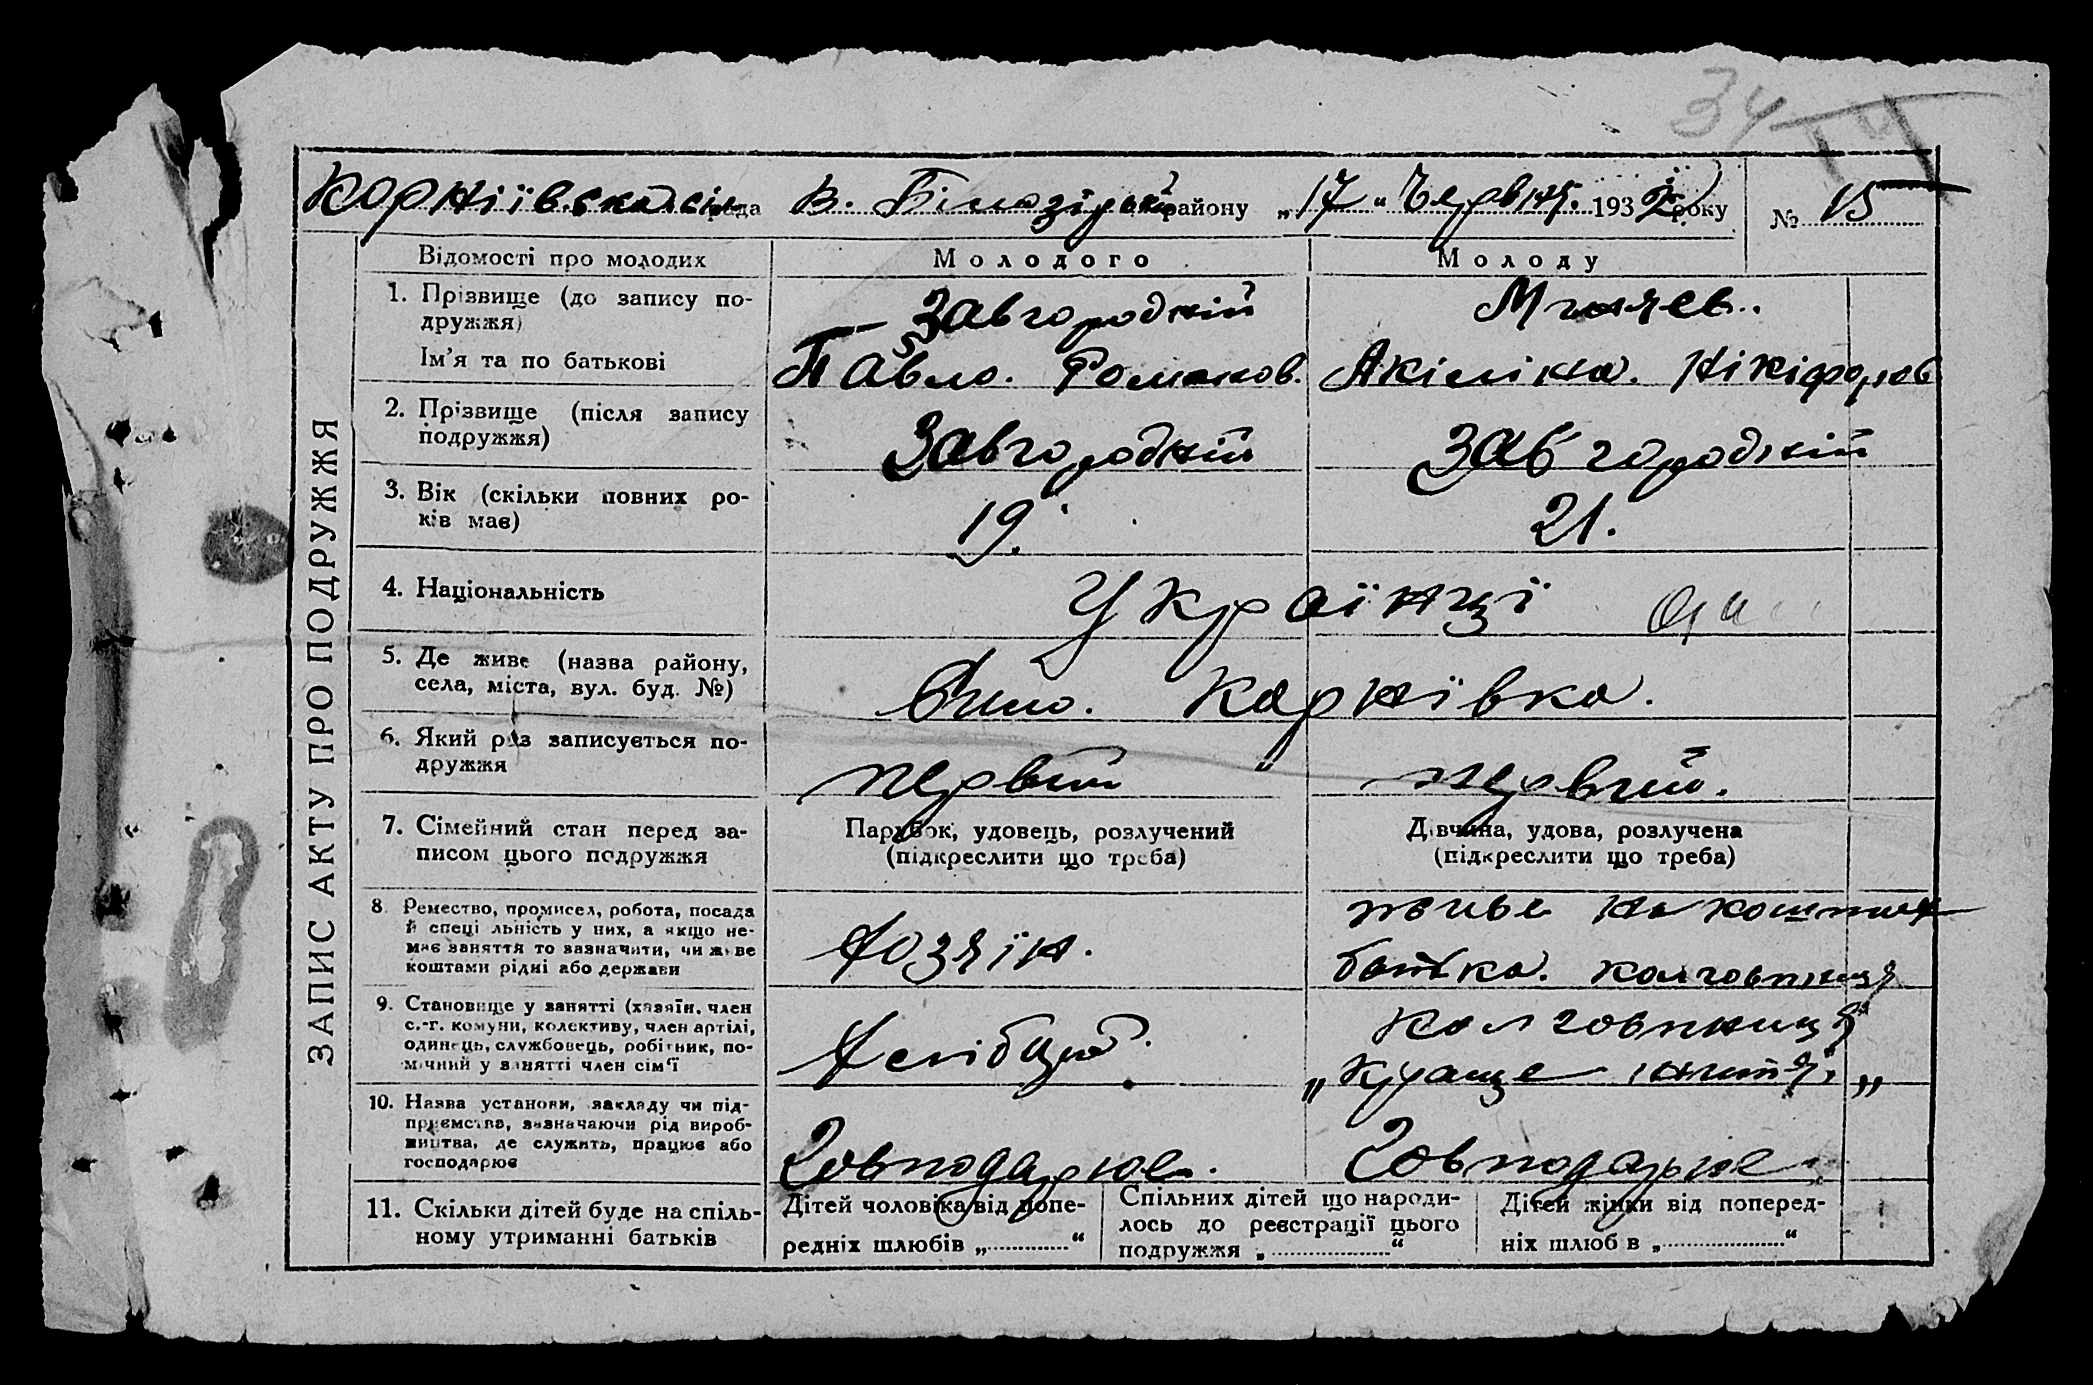 34
Корніївска сіл рада В. Білозірський району „17“ Червня. 1932 року № 15
ЗАПИС АКТУ ПРО ПОДРУЖЖЯ
Відомості про молодих Молодого Молоду
1. Прізвище (до запису подружжя) Завгородній
Ім'я та по батькові Павло. Романов. Акіліна. Нікіфоров
2. Прізвище (після запису подружжя) Завгородній Завгородній
3. Вік (скільки повних років має) 19. 21.
4. Національність Українці
5. Де живе (назва району, села, міста, вул. буд. №) Корнівка.
6. Який раз записується подружжя первий первий.
7. Сімейний стан перед записом цього подружжя Парубок, удовець, розлучений (підкреслити що треба) Дівчина, удова, розлучена (підкреслити що треба)
8. Ремество, промисел, робота, посада й спеціяльність у них, а якщо немає заняття то зазначити, чи живе коштами рідні або держави Хозяїн. на кошти батька. колговпниця
9. Становище у занятті (хазяїн, член с.-г. комуни, колективу, член артілі, одинець, службовець, робітник, помічний у занятті член сім'ї Хлібороб. колговпниця „Краще життя„
10. Назва установи, закладу чи підприємства, зазначаючи рід виробництва, де служить, працює або господарює Говподарює. Говподарює.
11. Скільки дітей буде на спільному утриманні батьків Дітей чоловіка від попередніх шлюбів „............“ Спільних дітей що народилось до реєстрації цього подружжя „............“ Дітей жінки від попередніх шлюбів „............“